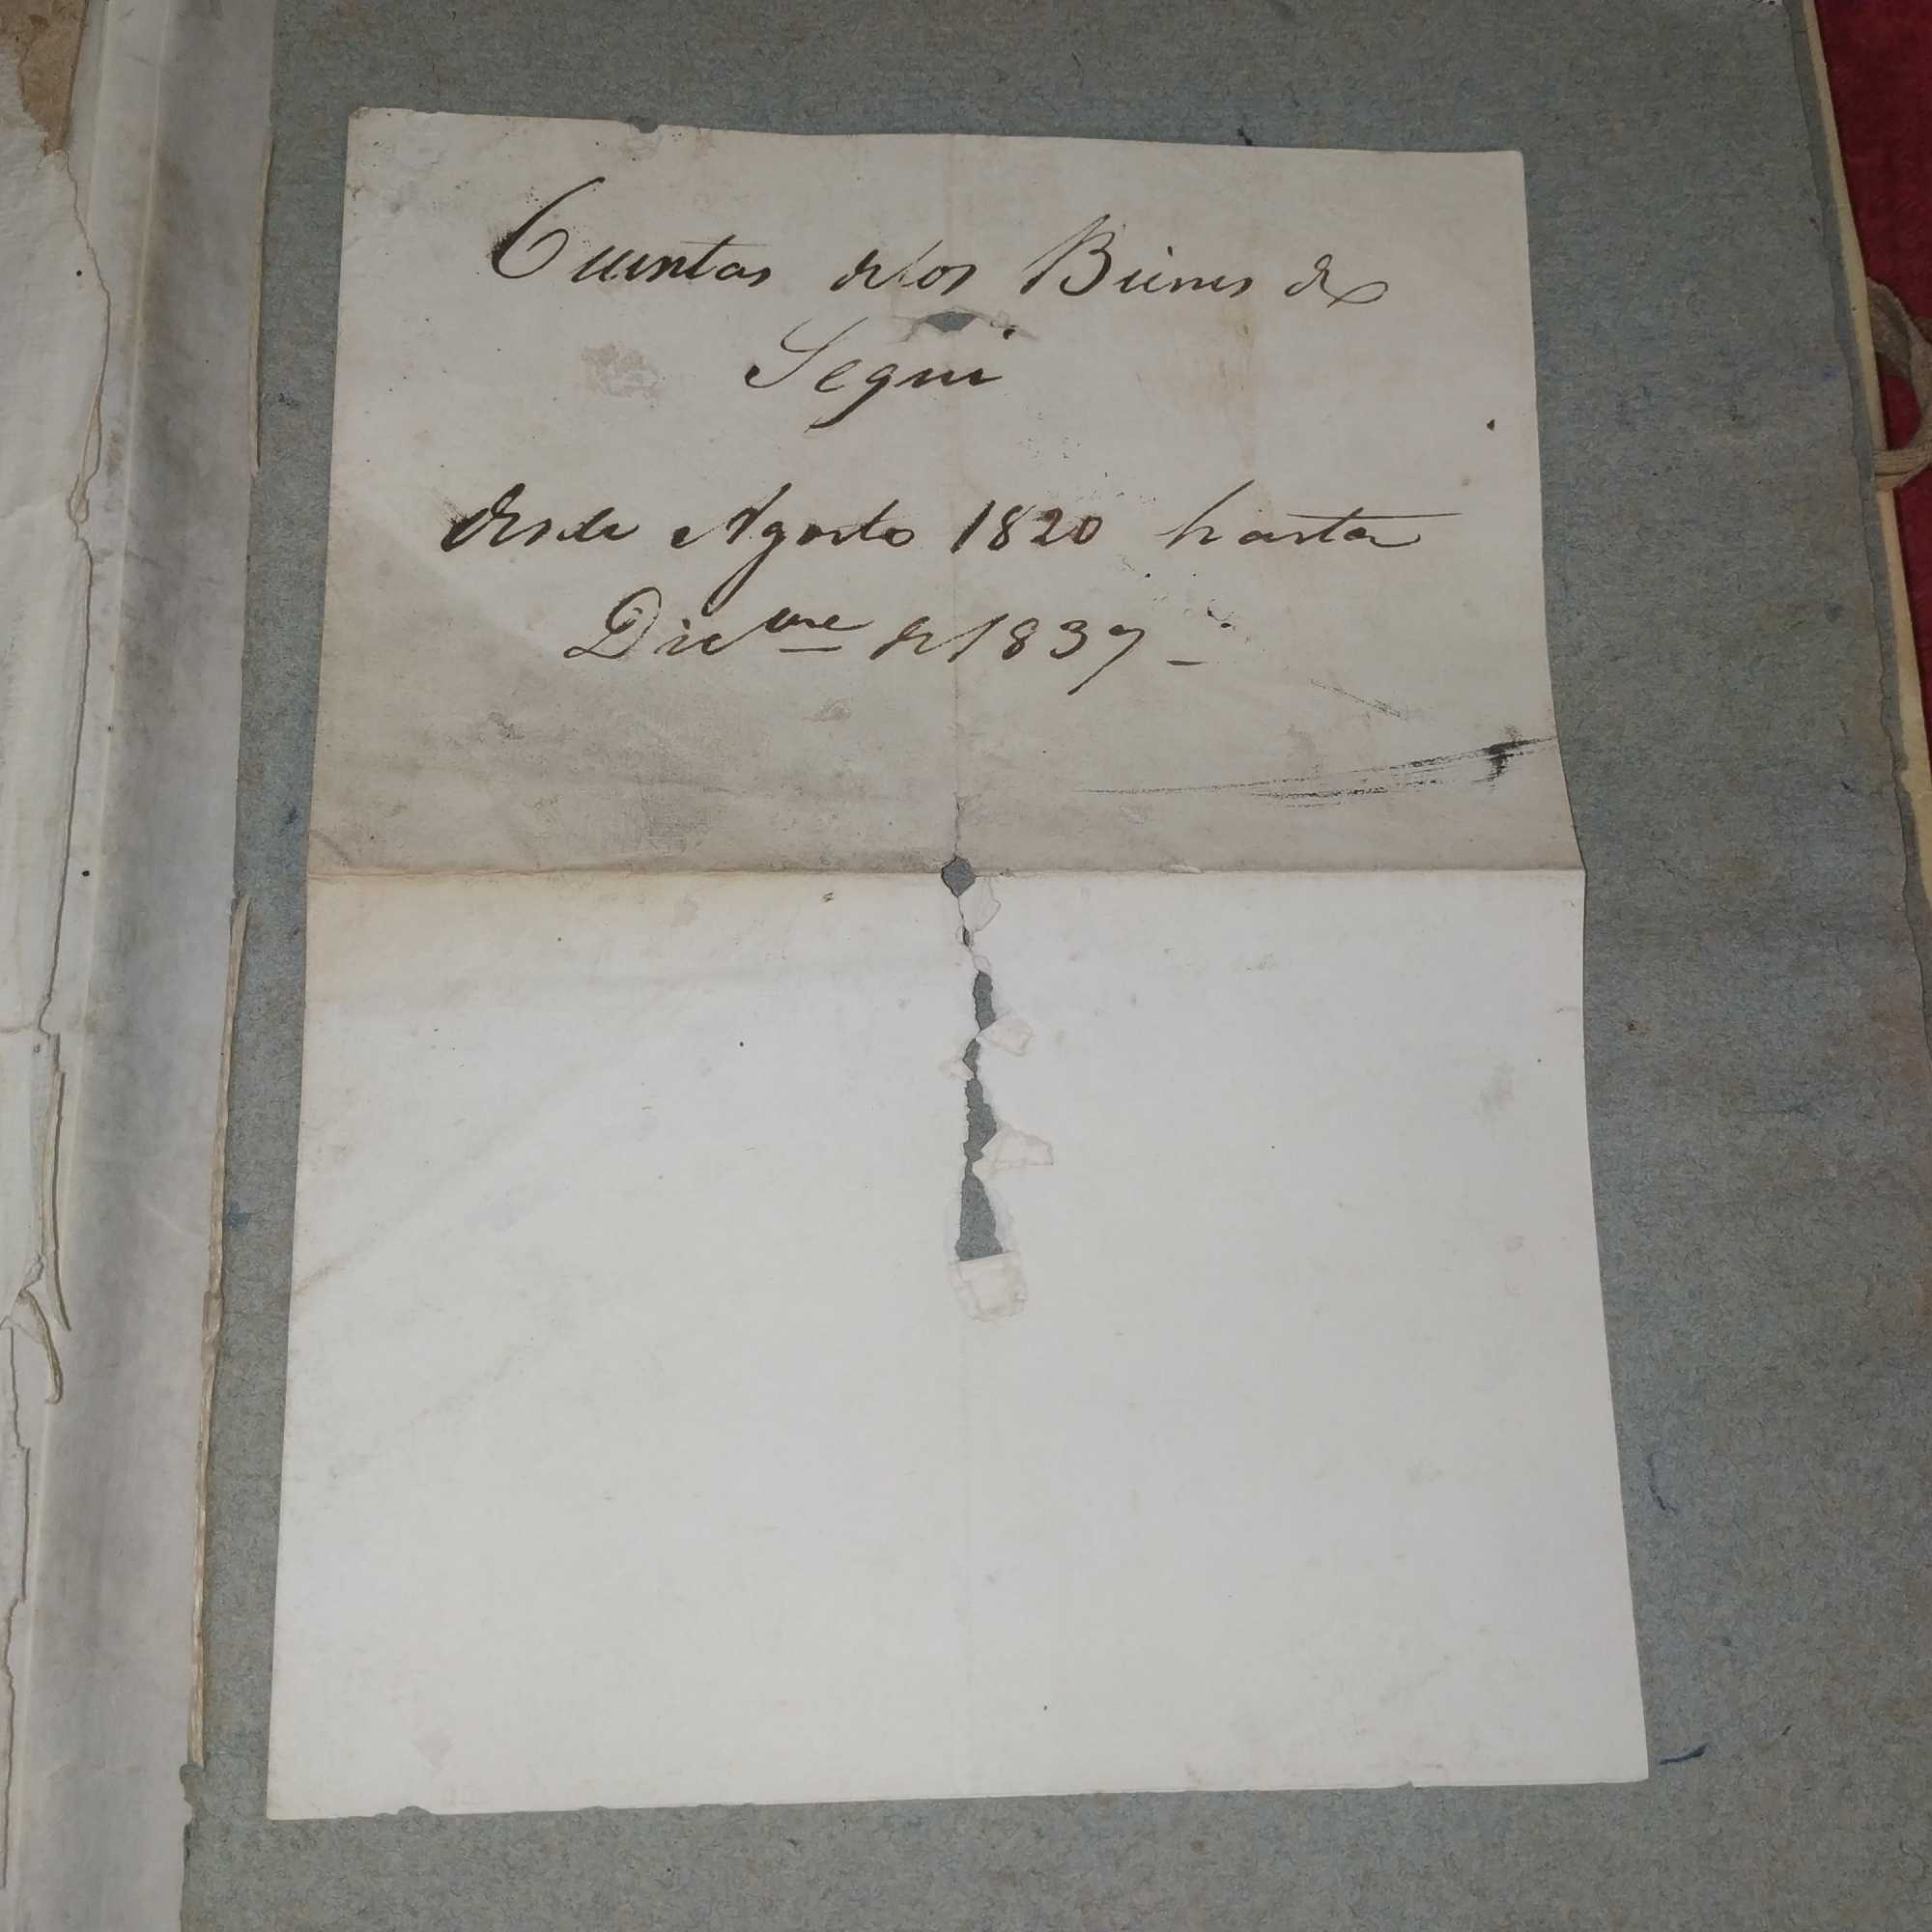 Cuentas delos Bienes de
Segui
desde Agosto 1820 hasta
Dicbre de 1837